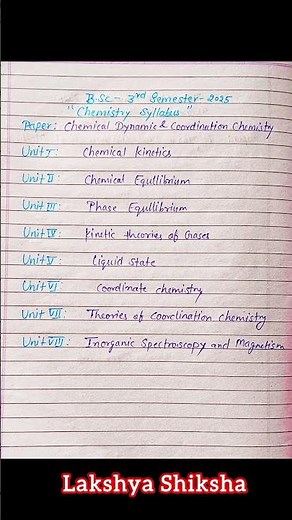 B.Sc - 3rd Semester - 2025
"Chemistry Syllabus"
Paper: Chemical Dynamic & Coordination Chemistry
Unit I: Chemical Kinetics
Unit II: Chemical Equllibrium
Unit III: Phase Equllibrium
Unit IV: Kinetic theories of Gases
Unit V: Liquid State
Unit VI: Coordinate chemistry
Unit VII: Theories of Coordination Chemistry
Unit VIII: Inorganic Spectroscopy and Magnetism
Lakshya Shiksha